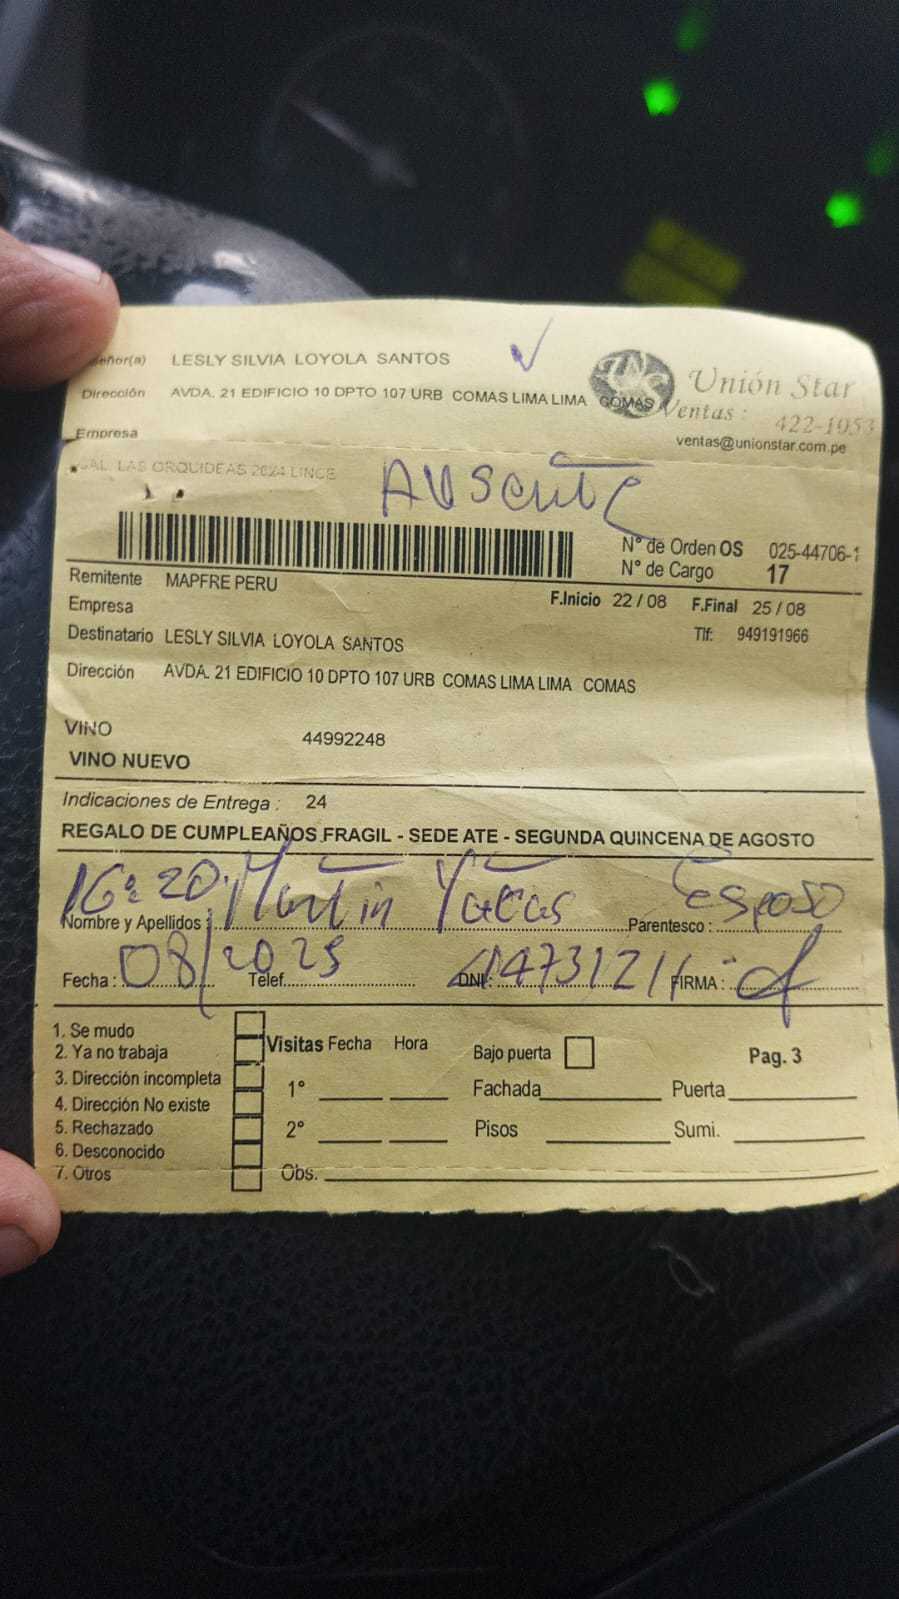 Señor(a) LESLY SILVIA LOYOLA SANTOS
Dirección AVDA. 21 EDIFICIO 10 DPTO 107 URB COMAS LIMA LIMA COMAS
Empresa
Unión Star
Ventas : 422-1953
ventas@unionstar.com.pe
CAL. LAS ORQUIDEAS 2024 LINCE
Ausente
N° de Orden OS 025-44706-1
N° de Cargo 17
Remitente MAPFRE PERU
F.Inicio 22 / 08 F.Final 25 / 08
Empresa
Tlf: 949191966
Destinatario LESLY SILVIA LOYOLA SANTOS
Dirección AVDA. 21 EDIFICIO 10 DPTO 107 URB COMAS LIMA LIMA COMAS
VINO 44992248
VINO NUEVO
Indicaciones de Entrega : 24
REGALO DE CUMPLEAÑOS FRAGIL - SEDE ATE - SEGUNDA QUINCENA DE AGOSTO
16:20 Martin
Esposo
Nombre y Apellidos : Parentesco :
08/2025
Fecha : Telef. DNI: FIRMA :
1. Se mudo
2. Ya no trabaja
3. Dirección incompleta
4. Dirección No existe
5. Rechazado
6. Desconocido
7. Otros
Visitas Fecha Hora
1°
2°
Obs.
Bajo puerta
Pag. 3
Fachada Puerta
Pisos Sumi.